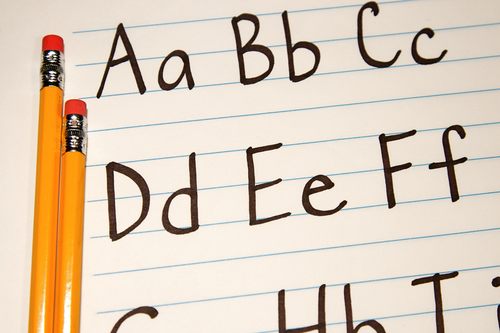 Aa Bb Cc
Dd Ee Ff
G Hh I